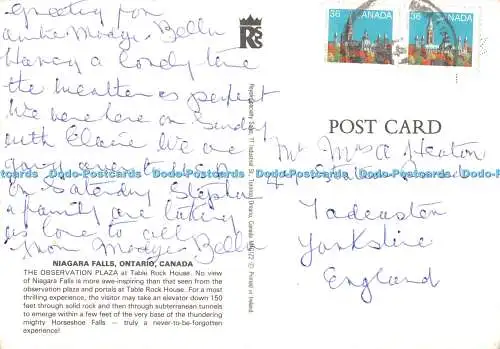 greeting from
Having a lovely time
the weather is perfect
were here on Sunday
with Elaine We are
going over to
on Saturday Stephen
& family are taking
us love to all
from Madge & Bella
NIAGARA FALLS, ONTARIO, CANADA
THE OBSERVATION PLAZA at Table Rock House. No view
of Niagara Falls is more awe-inspiring than that seen from the
observation plaza and portals at Table Rock House. For a most
thrilling experience, the visitor may take an elevator down 150
feet through solid rock and then through subterranean tunnels
to emerge within a few feet of the very base of the thundering
mighty Horseshoe Falls — truly a never-to-be-forgotten
experience!
RSC
36 CANADA
36 CANADA
POST CARD
Mr Mrs A Heaton
44 Station
Tadcaster
Yorkshire
England
Dodo-Postcards Dodo-Postcards Dodo-Postcards Dodo-Postcards Dodo-Postcards Dodo-Postcards